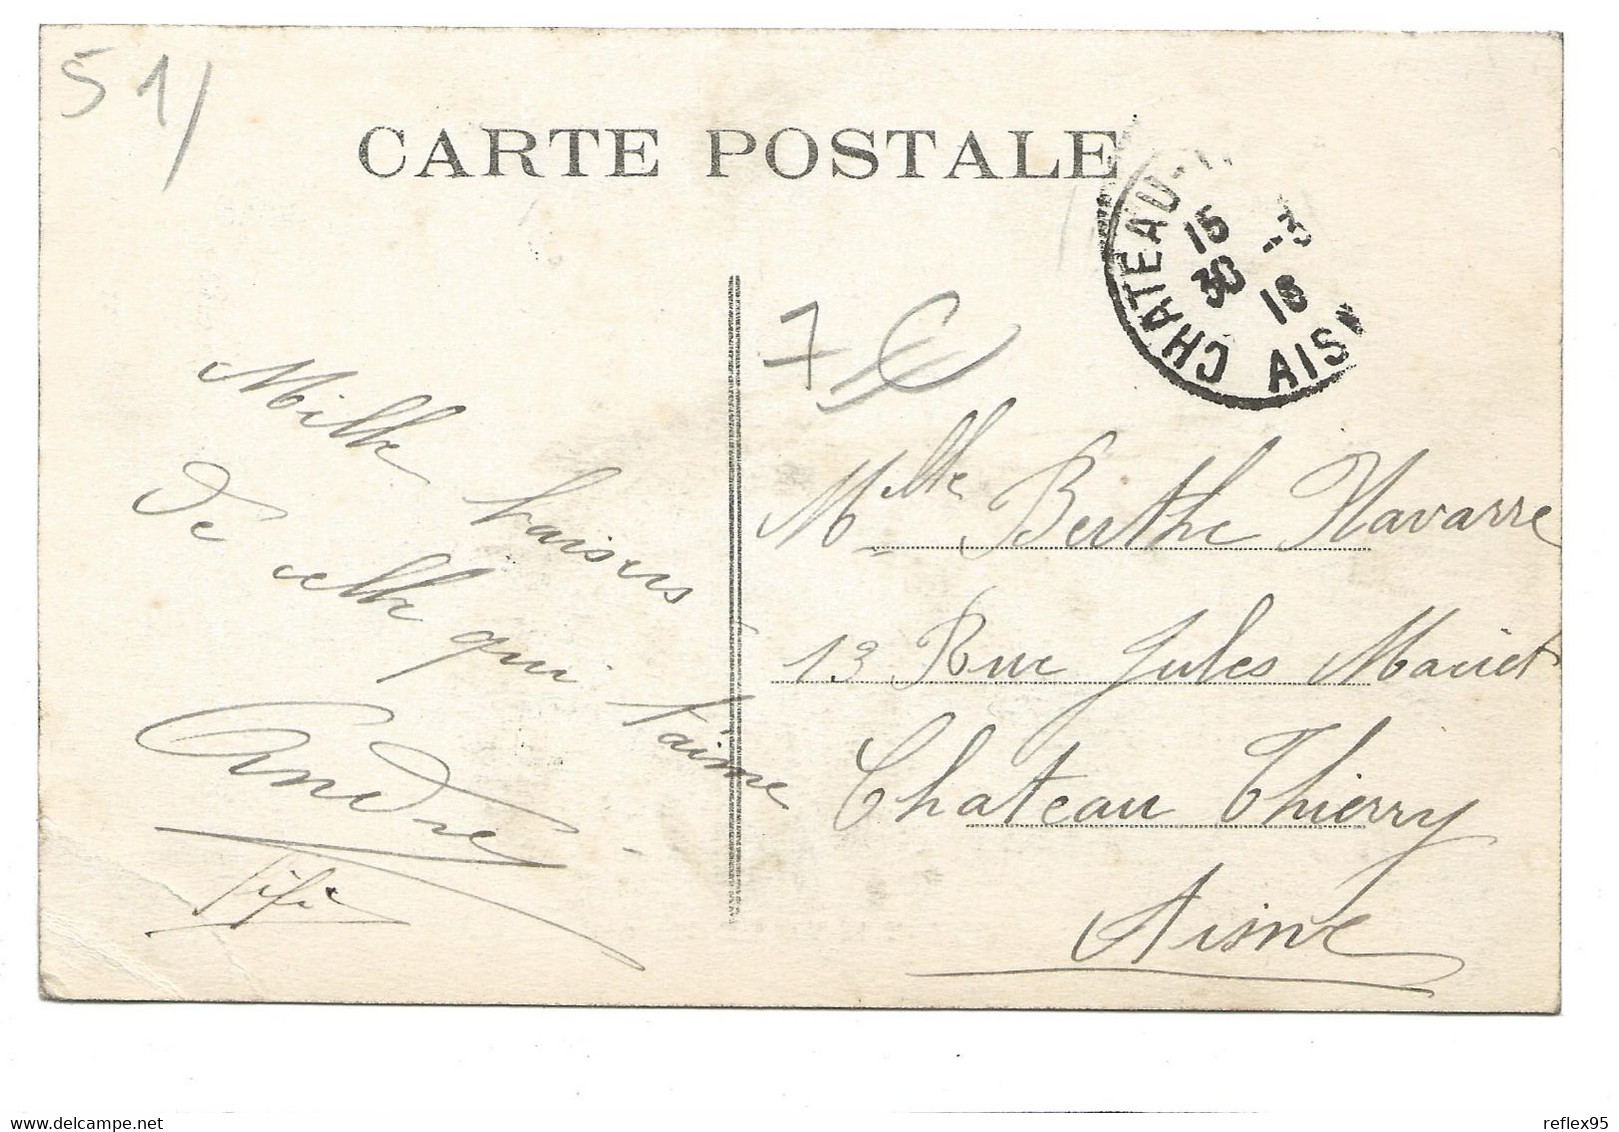 51/
CARTE POSTALE
CHATEAU-T
15 -3
30 18
AIS
7 €
Mille baisers
de celle qui t'aime
Andrée
Fifi
Mlle Berthe Navarre
13 Rue Jules Maciet
Chateau Thierry
Aisne
delcampe.net
reflex95